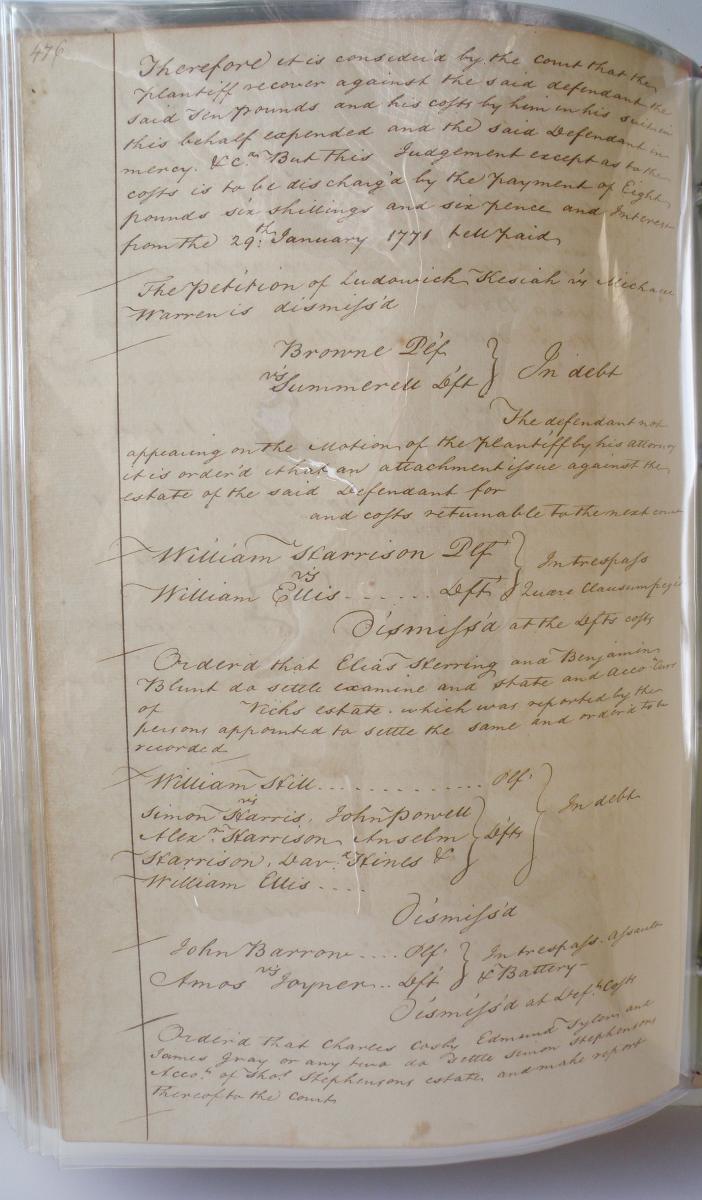 476
Therefore it is consider'd by the court that the
plantiff recover against the said defendant the
said Ten pounds and his costs by him in his suit in
this behalf expended and the said Defendant in
mercy. &c.ª But this Judgement except as to the
costs is to be discharg'd by the payment of Eight
pounds six shillings and six pence and Interest
from the 29.th January 1771 till paid
The petition of Ludowick Kesiah vs Michael
Warren is dismiss'd
Browne Plf
vs
Summerell Dft } In debt
The defendant not
appearing on the Motion of the plantiff by his attorney
it is order'd that an attachment issue against the
estate of the said Defendant for
and costs returnable to the next court
William Harrison Plf } In trespass
vs
William Ellis ...... Dft } Quare Clausum fregit
Dismiss'd at the Dfts costs
Order'd that Elias Herring and Benjamin
Blunt do settle examine and state and
of Vicks estate. which was reported by the
persons appointed to settle the same and order'd to be
recorded
William Hill ............. Plf.
vs
Simon Harris, John Powell
Alex.r Harrison, Anselm } Dfts } In debt
Harrison, Dav.d Hines &
William Ellis ....
Dismiss'd
John Barrow .... Plf. } In trespass. assault
vs
Amos Joyner .. Dft } & Battery
Dismiss'd at Def.ts Costs
Order'd that Charles Cosby Edmund Tyler and
James Gray or any two do settle Simon Stephensons
Acco.t of Tho.s Stephensons estate and make report
thereof to the Court